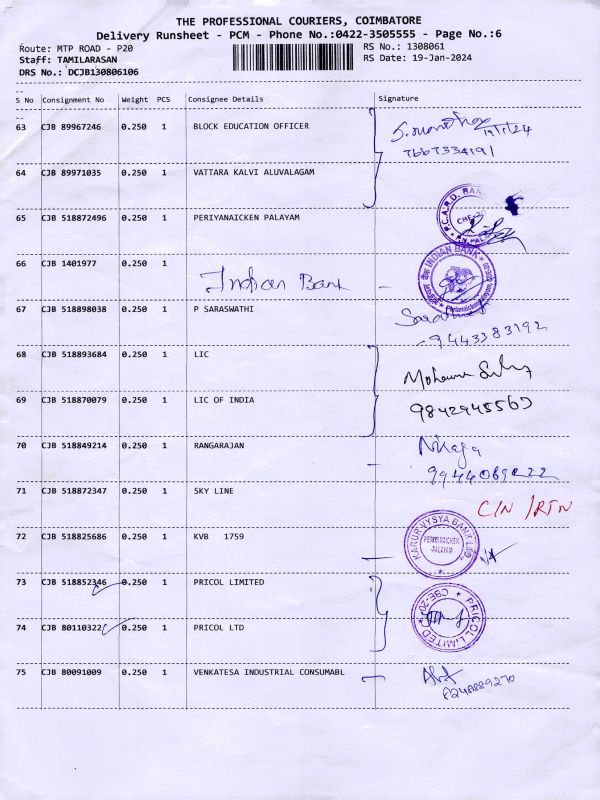 THE PROFESSIONAL COURIERS, COIMBATORE
Delivery Runsheet - PCM - Phone No.:0422-3505555 - Page No.:6
Route: MTP ROAD - P20 RS No.: 1308061
Staff: TAMILARASAN RS Date: 19-Jan-2024
DRS No.: DCJB130806106
S No Consignment No Weight PCS Consignee Details Signature
63 CJB 89967246 0.250 1 BLOCK EDUCATION OFFICER
19/1/24
7667334191
64 CJB 89971035 0.250 1 VATTARA KALVI ALUVALAGAM
65 CJB 518872496 0.250 1 PERIYANAICKEN PALAYAM
P.C.A.R.D. BANK
66 CJB 1401977 0.250 1 Indian Bank
INDIAN BANK
67 CJB 518898038 0.250 1 P SARASWATHI
9443383192
68 CJB 518893684 0.250 1 LIC
69 CJB 518870079 0.250 1 LIC OF INDIA
70 CJB 518849214 0.250 1 RANGARAJAN
71 CJB 518872347 0.250 1 SKY LINE C/N /RTN
72 CJB 518825686 0.250 1 KVB 1759
KARUR VYSYA BANK LTD.
PERIYANAICKEN
PALAYAM
73 CJB 518852346 0.250 1 PRICOL LIMITED
PRICOL LIMITED * CBE-20 *
74 CJB 80110322 0.250 1 PRICOL LTD
75 CJB 80091009 0.250 1 VENKATESA INDUSTRIAL CONSUMABL